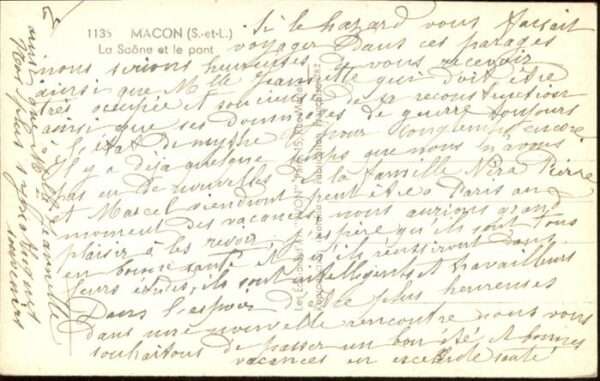 1135 MACON (S.-et-L.)
La Saône et le pont
Si le hazard vous faisait
voyager dans ces parages
nous serions heureuses de vous recevoir
ainsi que Mlle Jeannette qui doit être
très occupée et soucieuse de la reconstruction
ainsi que ses dommages de guerre toujours
à l'état de mythe et pour longtemps encore
Il y a déjà quelque temps que nous n'avons
pas eu de nouvelles de la famille Pierre
et Marcel viendront peut être à Paris au
moment des vacances, nous aurions grand
plaisir à les revoir. J'espère qu'ils sont tous
en bonne santé et qu'ils réussiront dans
leurs études, ils sont intelligents et travailleurs
Dans l'espoir d'être plus heureuses
dans une nouvelle rencontre nous vous
souhaitons de passer un bon été, et bonnes
vacances en excellente santé
ainsi que Mlle Jeannette
Nos plus affectueux
souvenirs